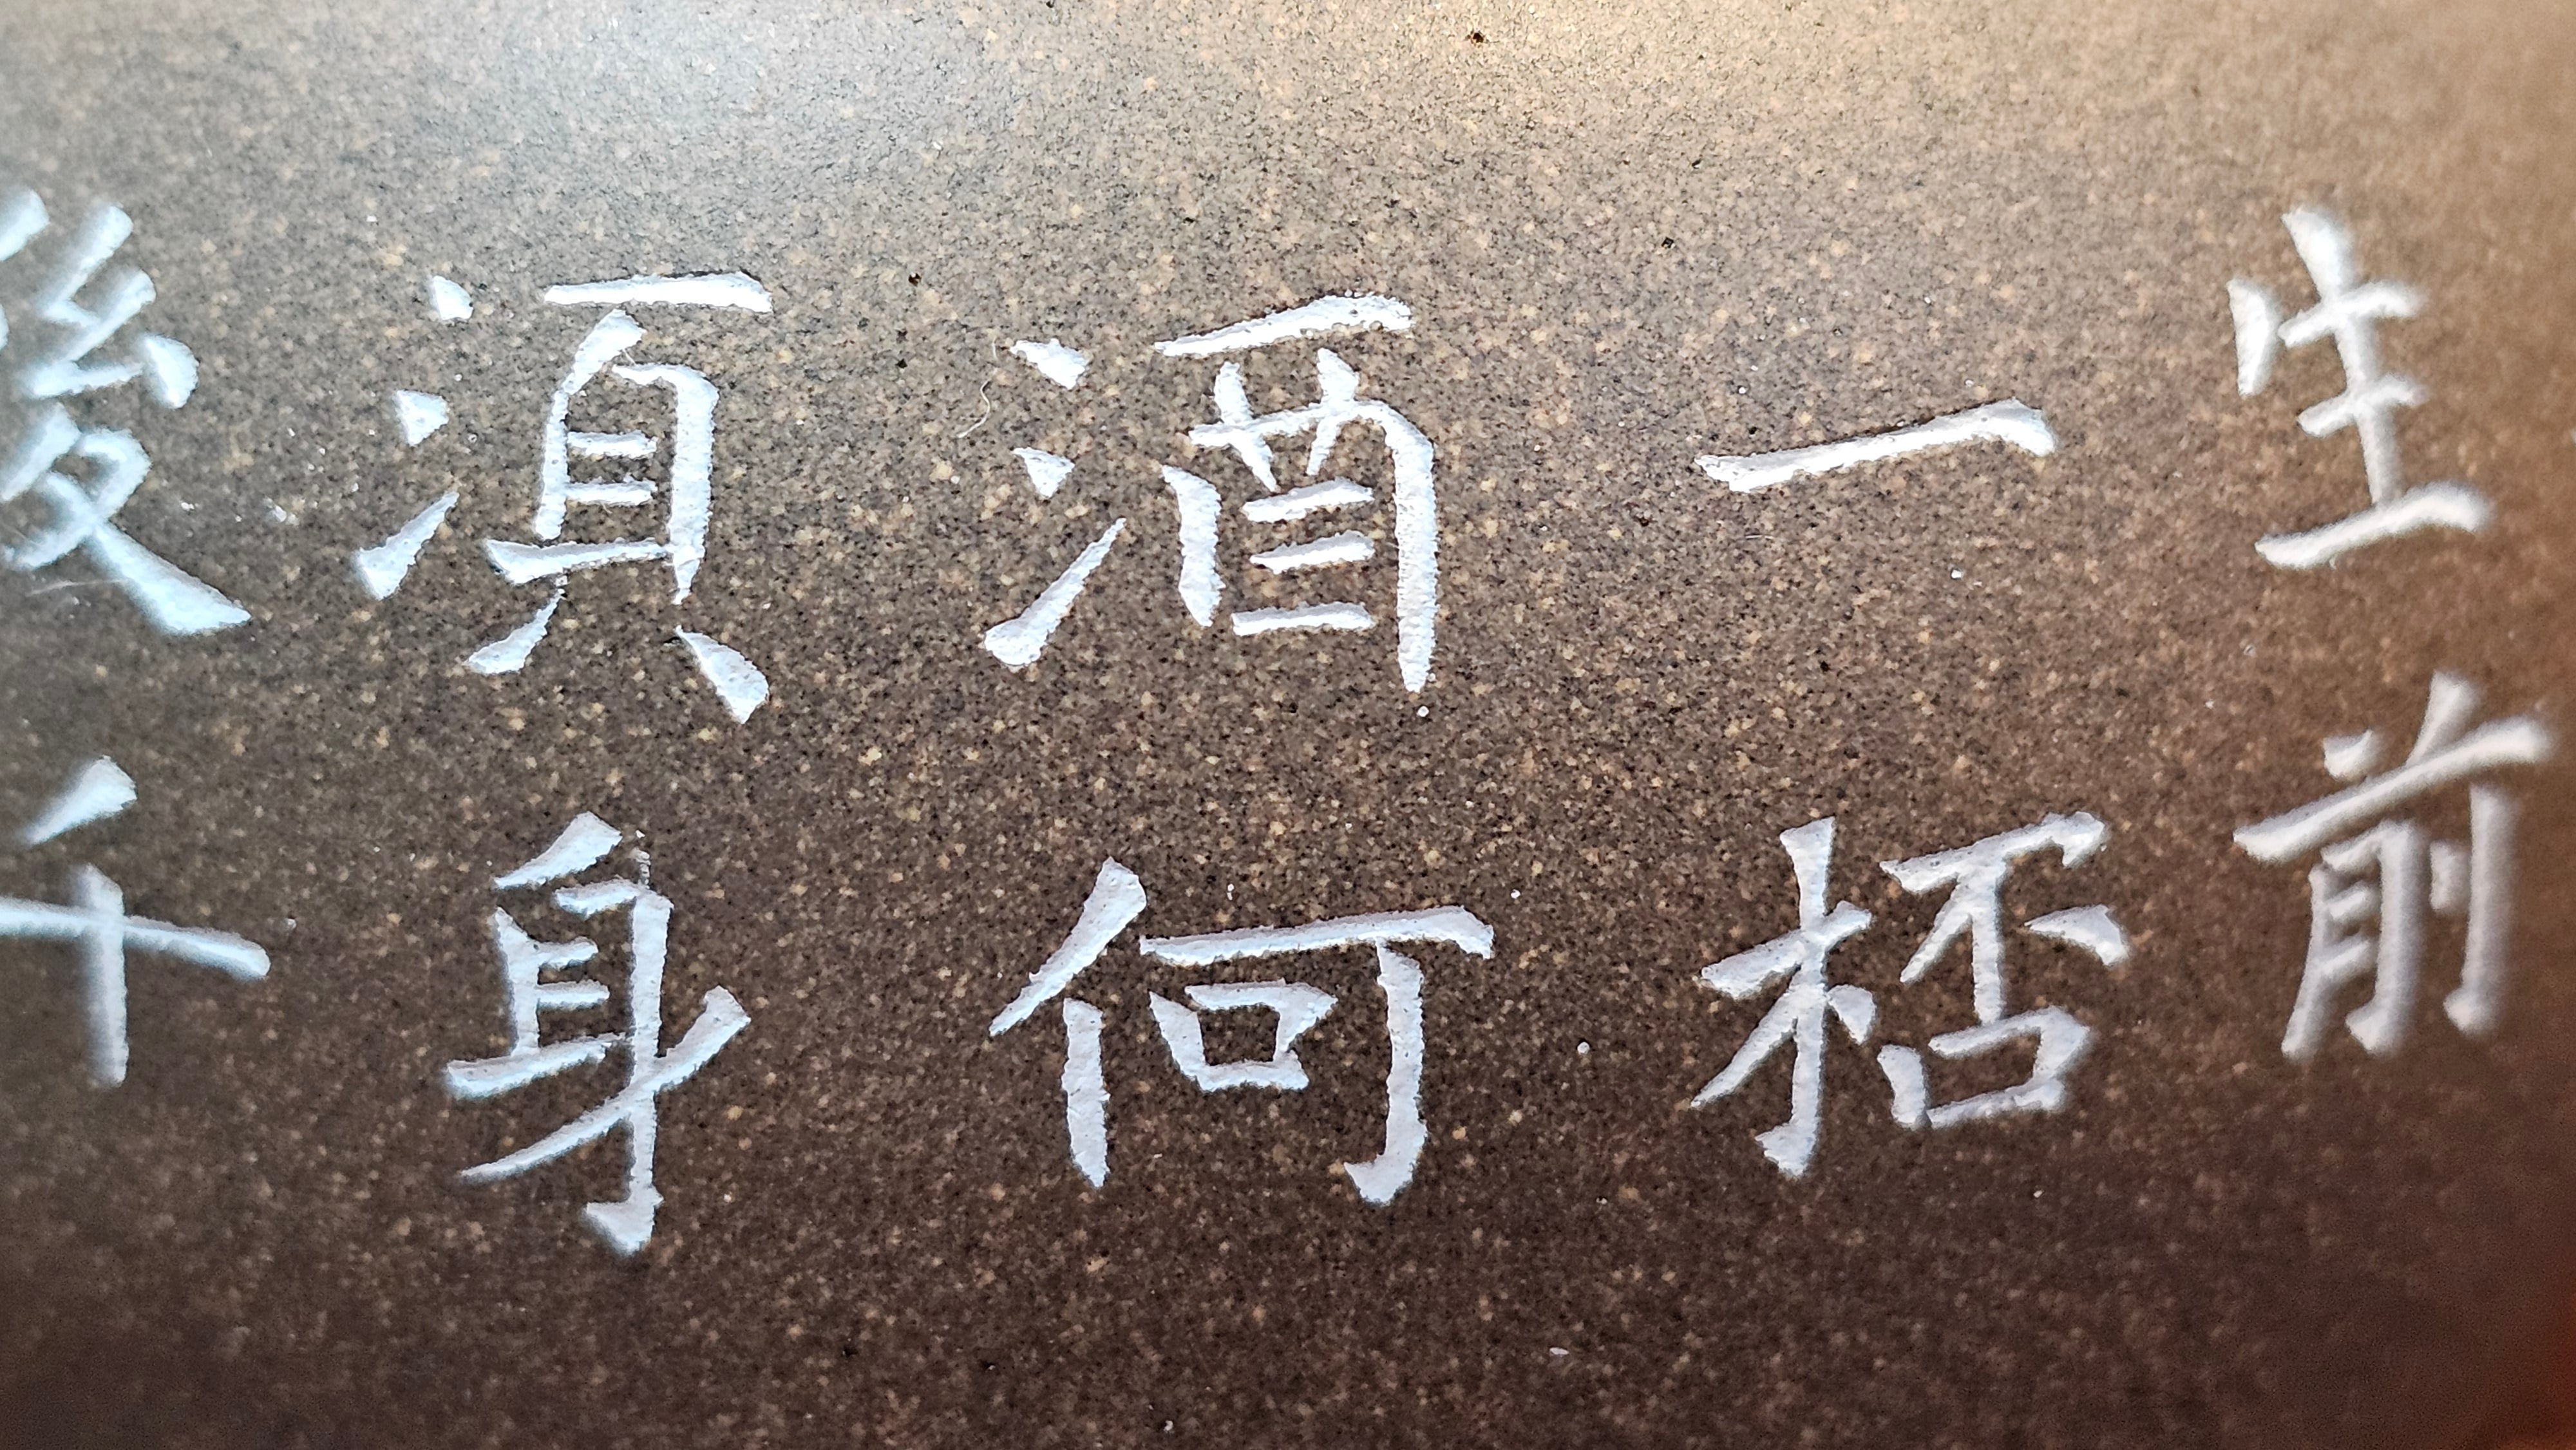 生前
一桮
酒何
湏身
後千